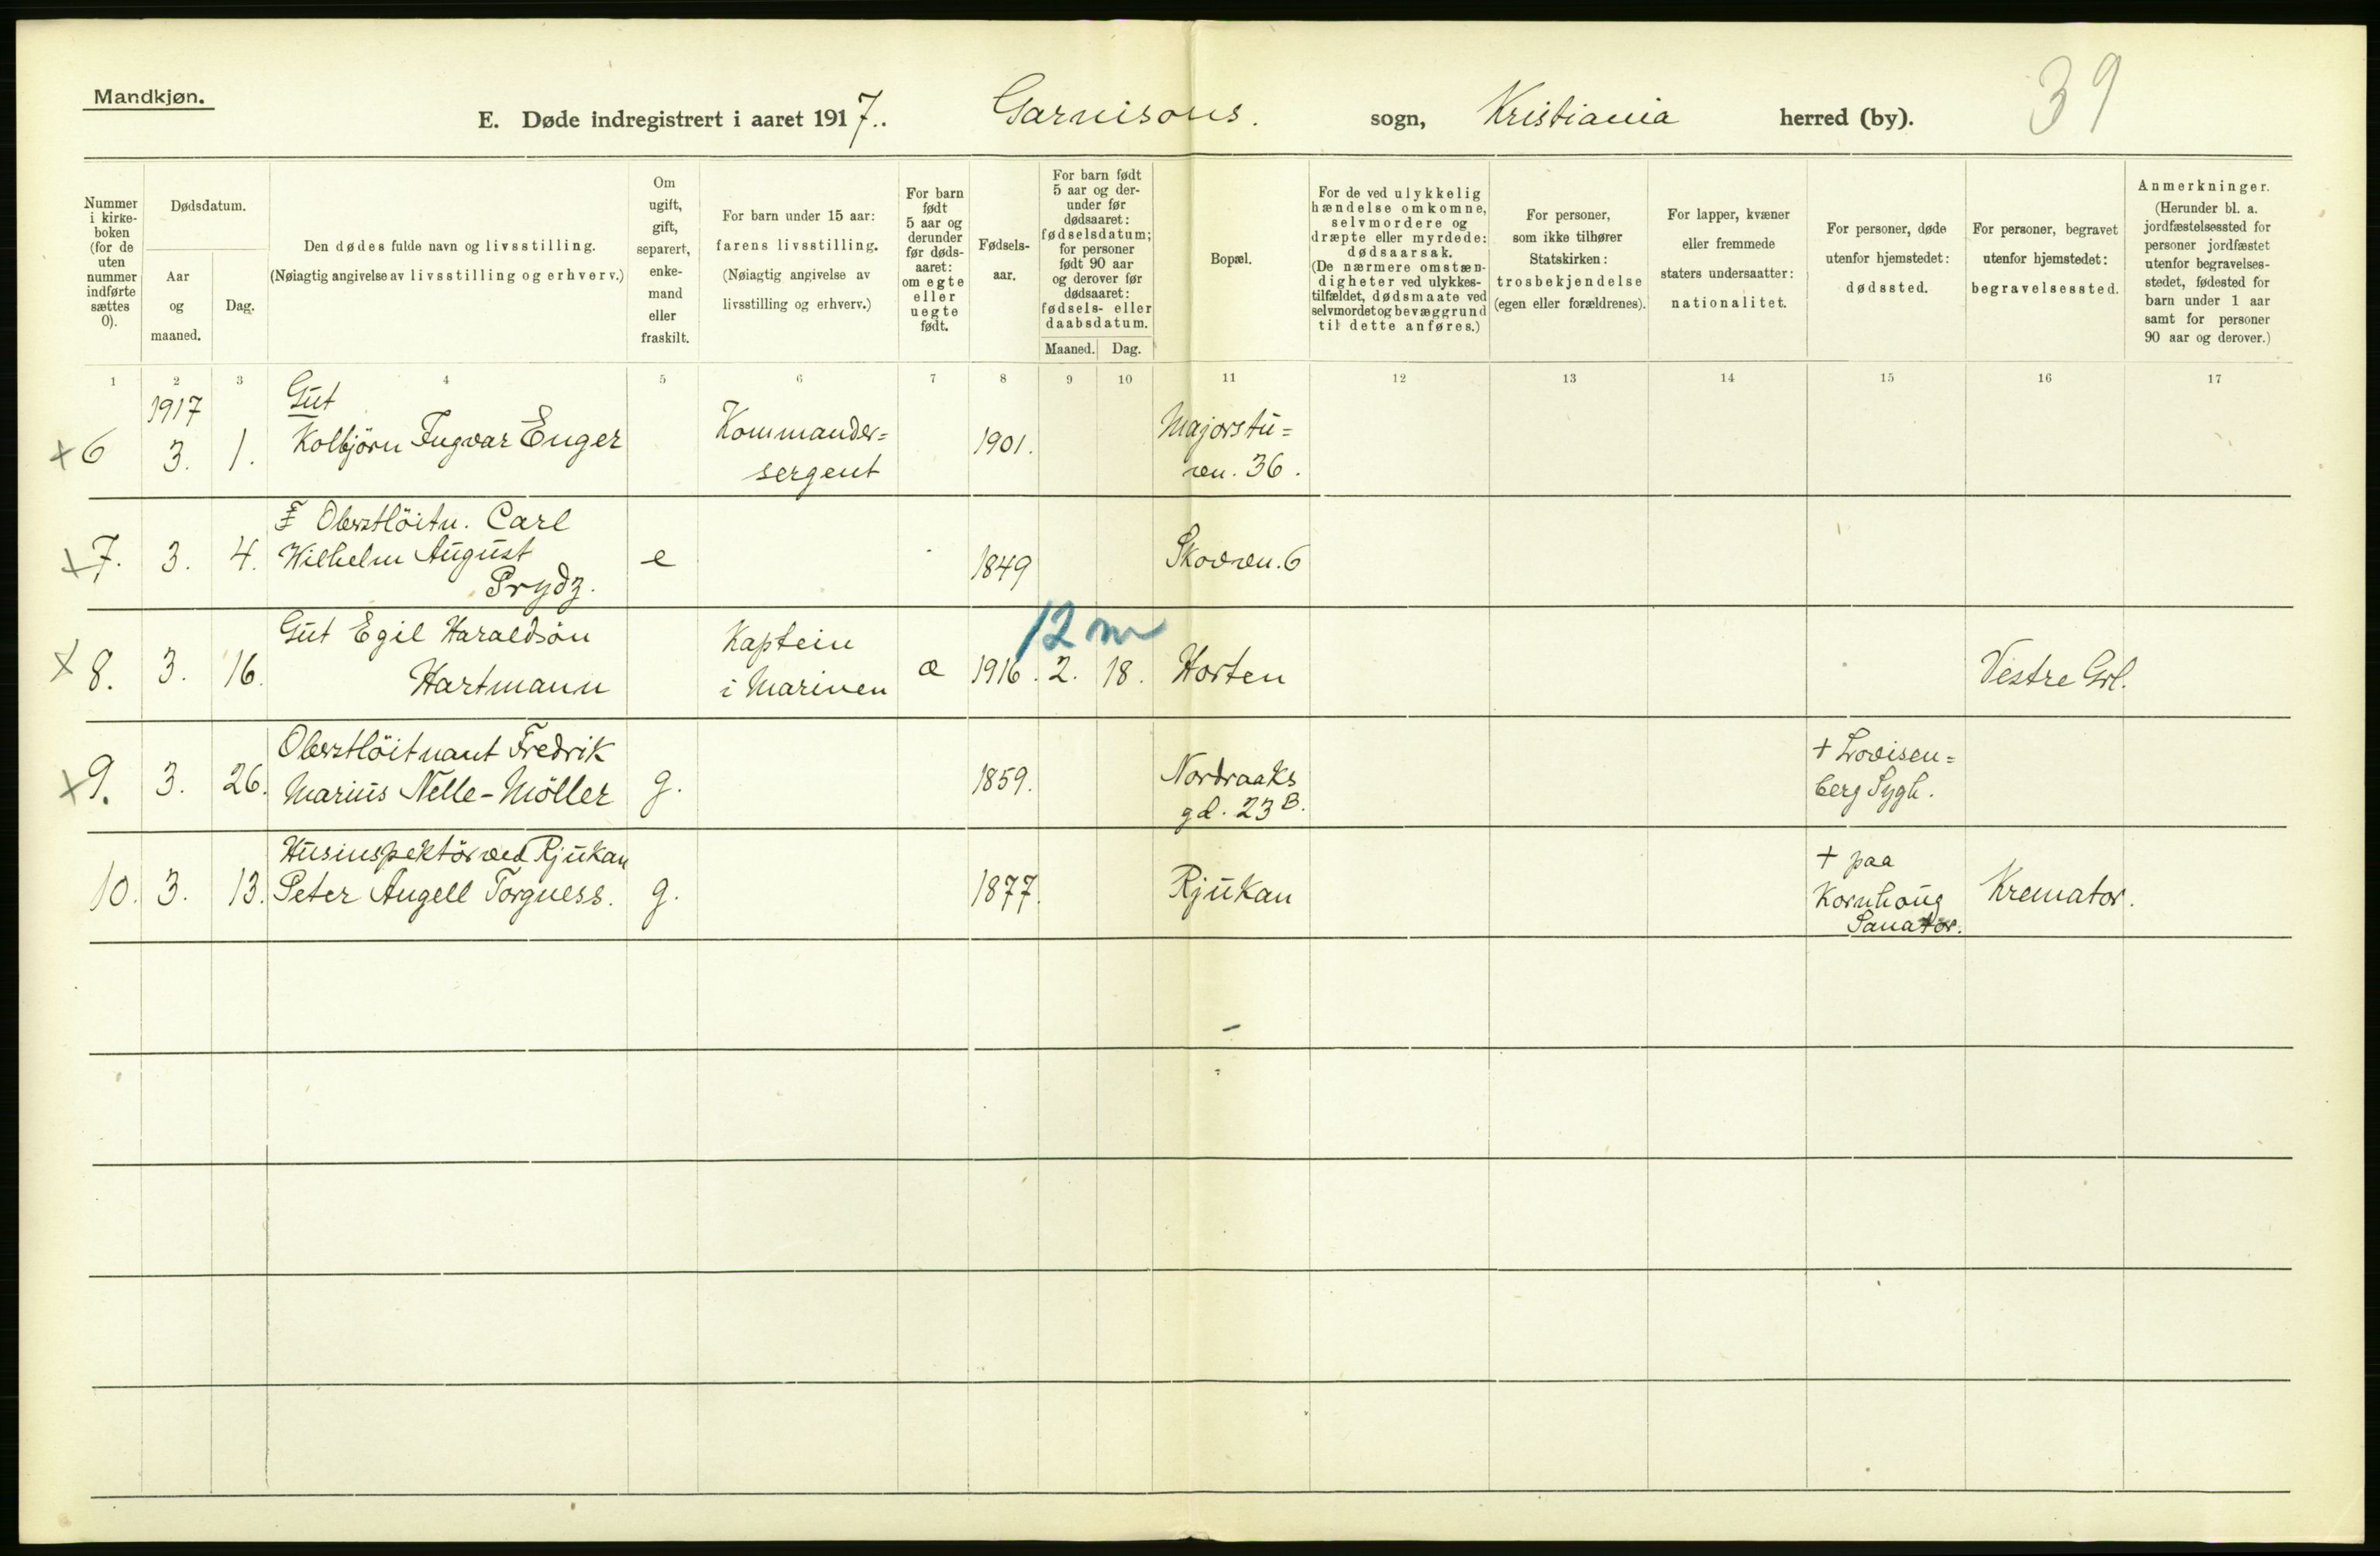 Mandkjøn.
E. Døde indregistrert i aaret 1917. Garnisons. sogn, Kristiania herred (by). 39
Nummer
i kirke-
boken
(for de
uten
nummer
indførte
sættes
0).
Dødsdatum.
Aar
og
maaned.
Dag.
Den dødes fulde navn og livsstilling.
(Nøiagtig angivelse av livsstilling og erhverv.)
Om
ugift,
gift,
separert,
enke-
mand
eller
fraskilt.
For barn under 15 aar:
farens livsstilling.
(Nøiagtig angivelse av
livsstilling og erhverv.)
For barn
født
5 aar og
derunder
før døds-
aaret:
om egte
eller
uegte
født.
Fødsels-
aar.
For barn født
5 aar og der-
under før
dødsaaret:
fødselsdatum;
for personer
født 90 aar
og derover før
dødsaaret:
fødsels- eller
daabsdatum.
Maaned. Dag.
Bopæl.
For de ved ulykkelig
hændelse omkomne,
selvmordere og
dræpte eller myrdede:
dødsaarsak.
(De nærmere omstæn-
digheter ved ulykkes-
tilfældet, dødsmaate ved
selvmordet og bevæggrund
til dette anføres.)
For personer,
som ikke tilhører
Statskirken:
trosbekjendelse
(egen eller forældrenes).
For lapper, kvæner
eller fremmede
staters undersaatter:
nationalitet.
For personer, døde
utenfor hjemstedet:
dødssted.
For personer, begravet
utenfor hjemstedet:
begravelsessted.
Anmerkninger.
(Herunder bl. a.
jordfæstelsessted for
personer jordfæstet
utenfor begravelses-
stedet, fødested for
barn under 1 aar
samt for personer
90 aar og derover.)
1 2 3 4 5 6 7 8 9 10 11 12 13 14 15 16 17
1917
+6 3. 1.
Gut
Kolbjörn Ingvar Enger
Kommander=
sergent
1901.
Majorstu=
ven. 36.
+7. 3. 4.
Oberstlöitn. Carl
Wilhelm August
Prydz.
e
1849
Skovven. 6
+8. 3. 16.
Gut Egil Haraldsön
Hartmann
Kaptein
i Marinen
æ
12 m
1916. 2. 18.
Horten
Vestre Grl.
+9. 3. 26.
Oberstlöitnant Fredrik
Marius Nelle-Möller
g.
1859.
Nordraaks
gd. 23 B.
+ Lovisen=
berg Sygh.
10. 3. 13.
Husinspektör ved Rjukan
Peter Angell Torgness.
g.
1877.
Rjukan
+ paa
Kornhoug
Sanator.
Kremator.